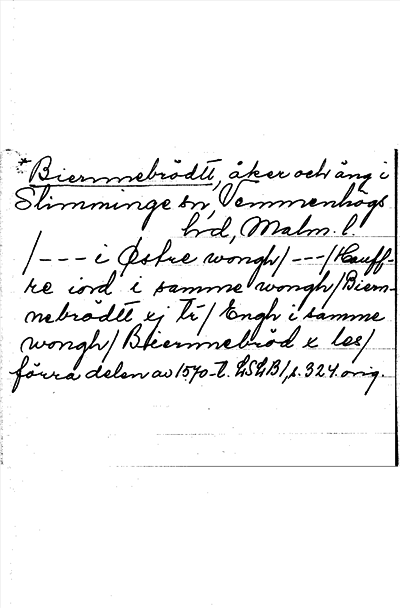 *Biermnebrödtt, åker och äng i
Slimminge sn, Vemmenhögs
hrd, Malm. l.
/--- i Østre wongh/ ---/Hauff-
re iord i samme wongh/Bierm-
nebrödtt ej tr/ Engh i samme
wongh/ Biermnebröd x les/
förra delen av 1570-t. LSLB1, s. 324. orig.